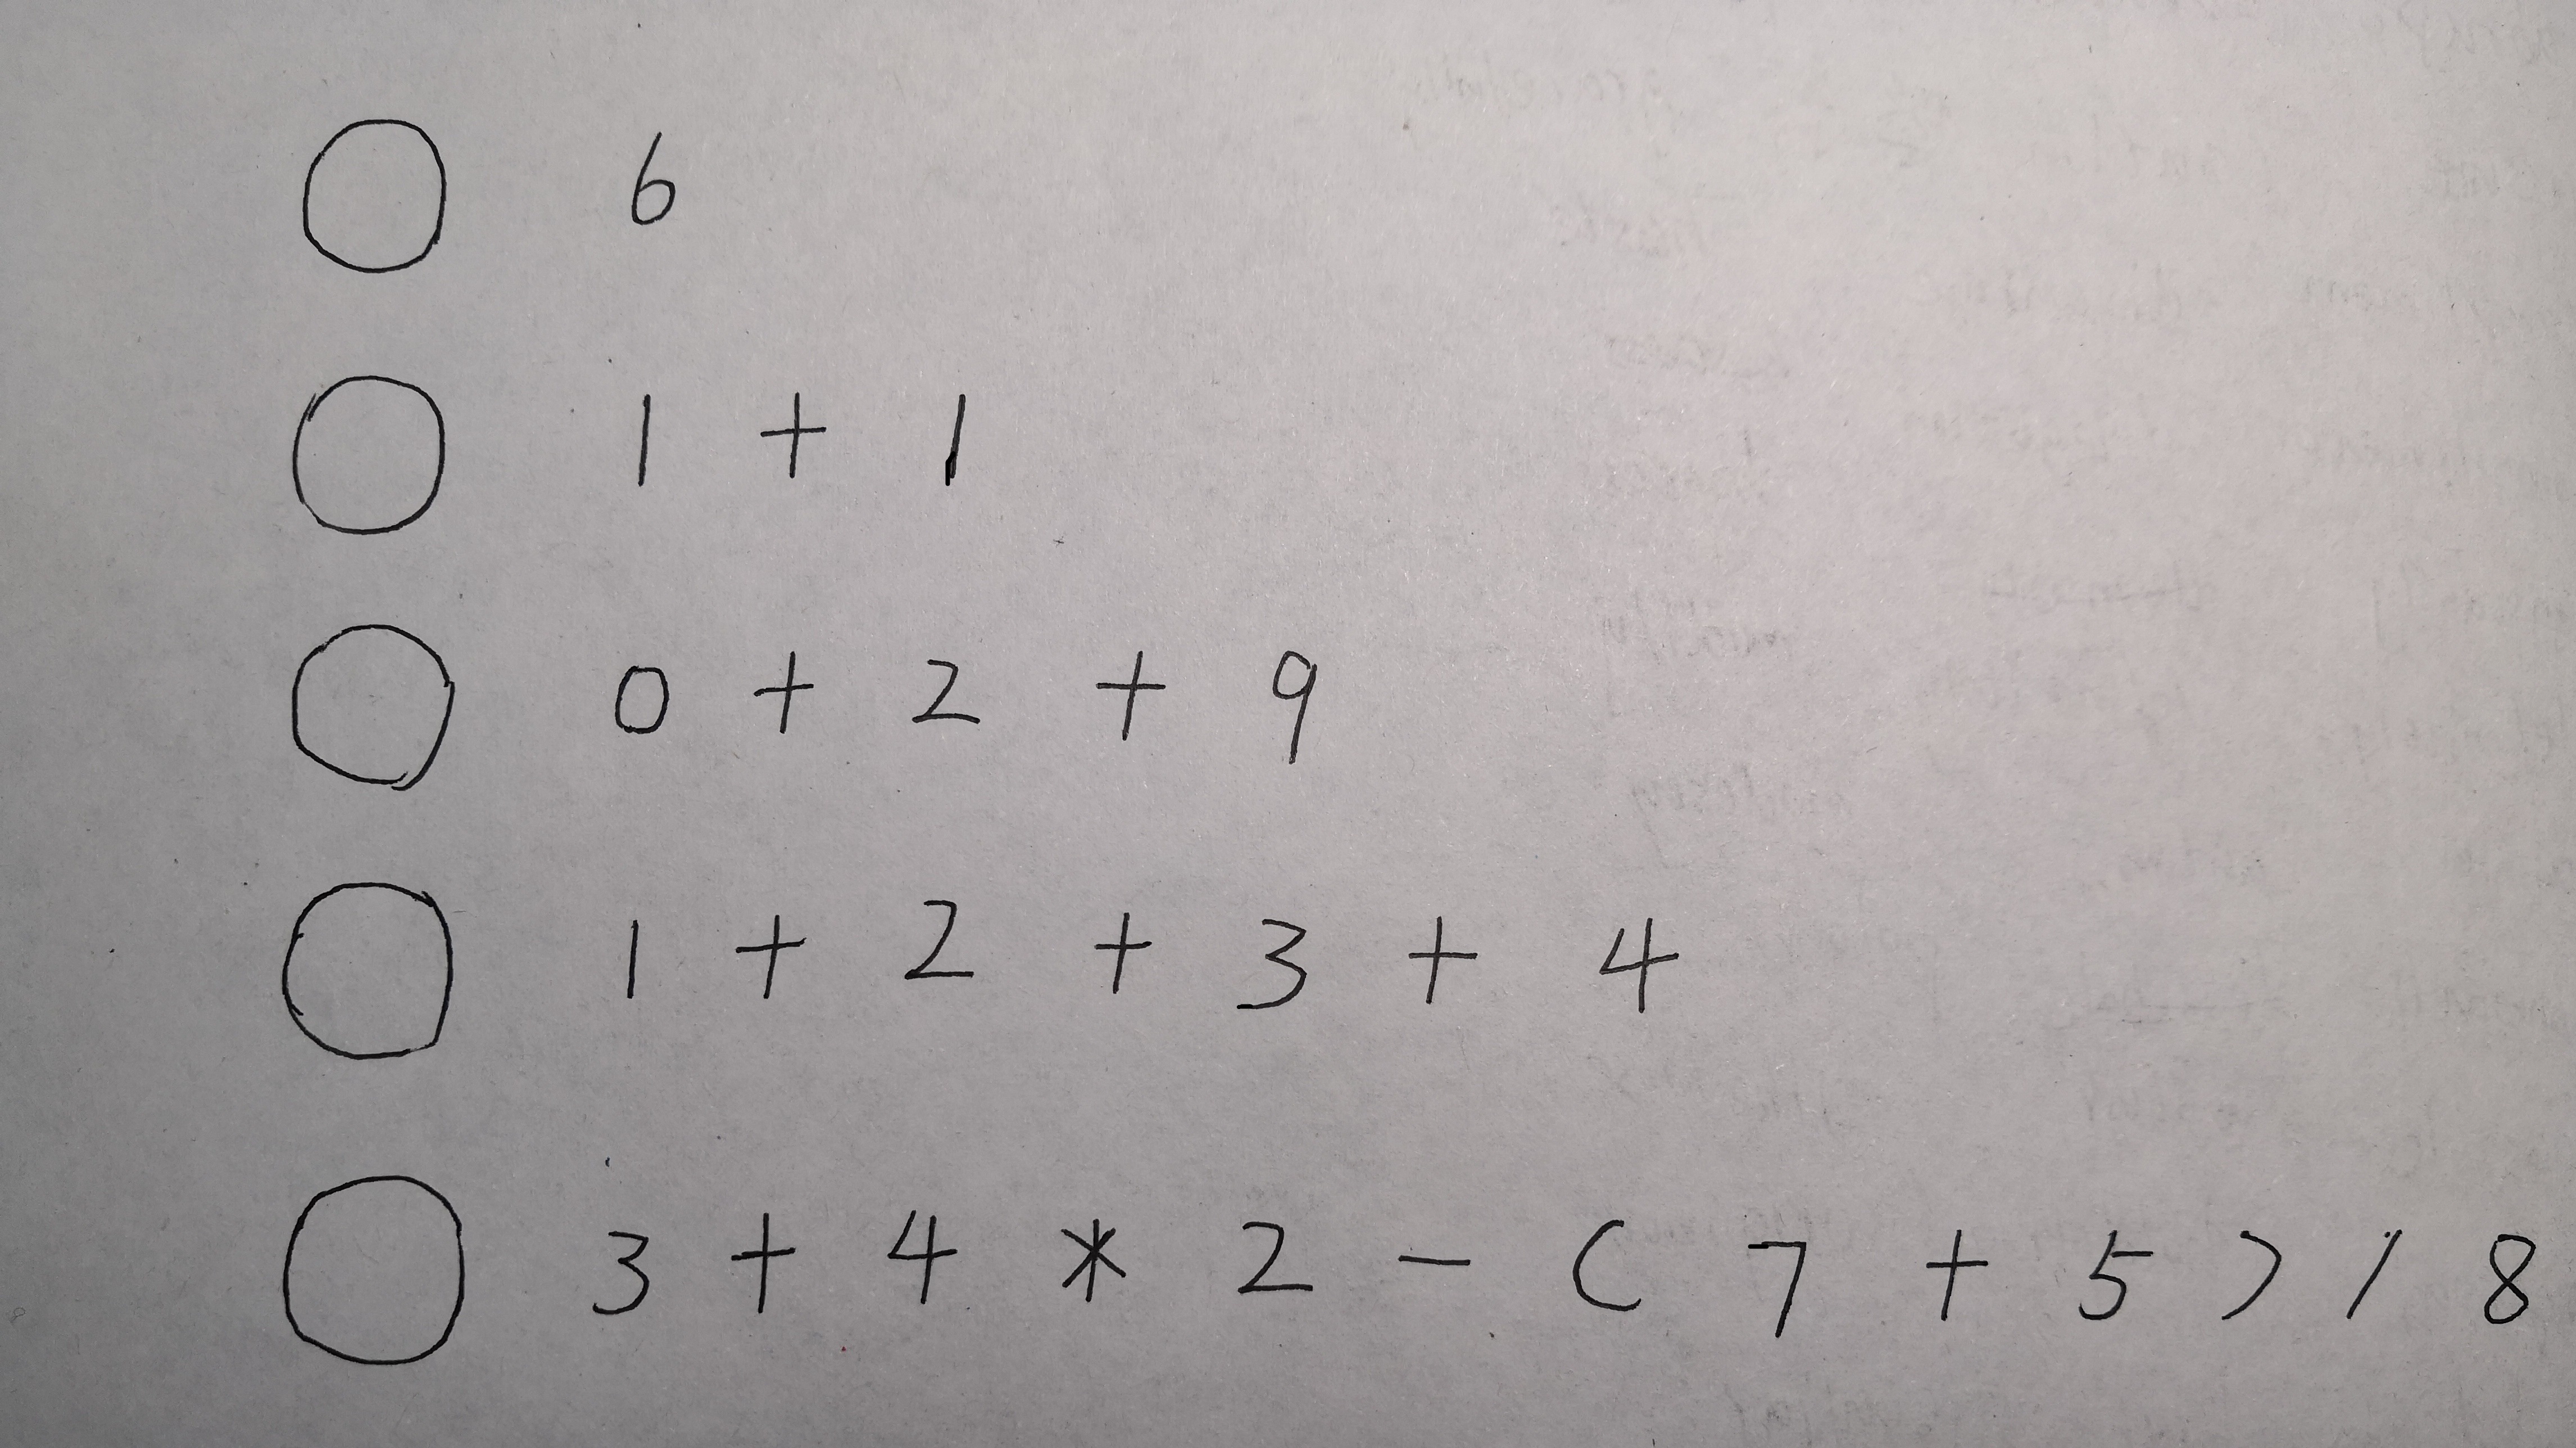 6
1 + 1
0 + 2 + 9
1 + 2 + 3 + 4
3 + 4 * 2 - ( 7 + 5 ) / 8